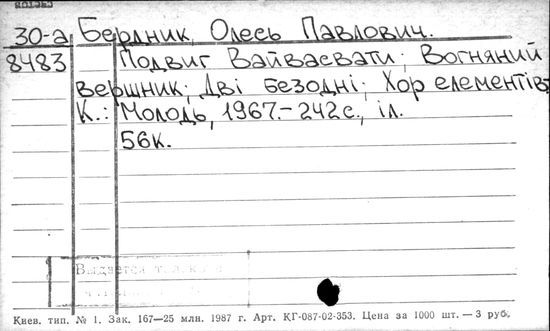 30-а Бердник, Олесь Павлович.
8483 Подвиг Вайвасвати; Вогняний
вершник; Дві безодні; Хор елементів.
К.: Молодь, 1967.- 242с., іл.
56к.
Киев. тип. № 1. Зак. 167—25 млн. 1987 г. Арт. КГ-087-02-353. Цена за 1000 шт. — 3 руб.